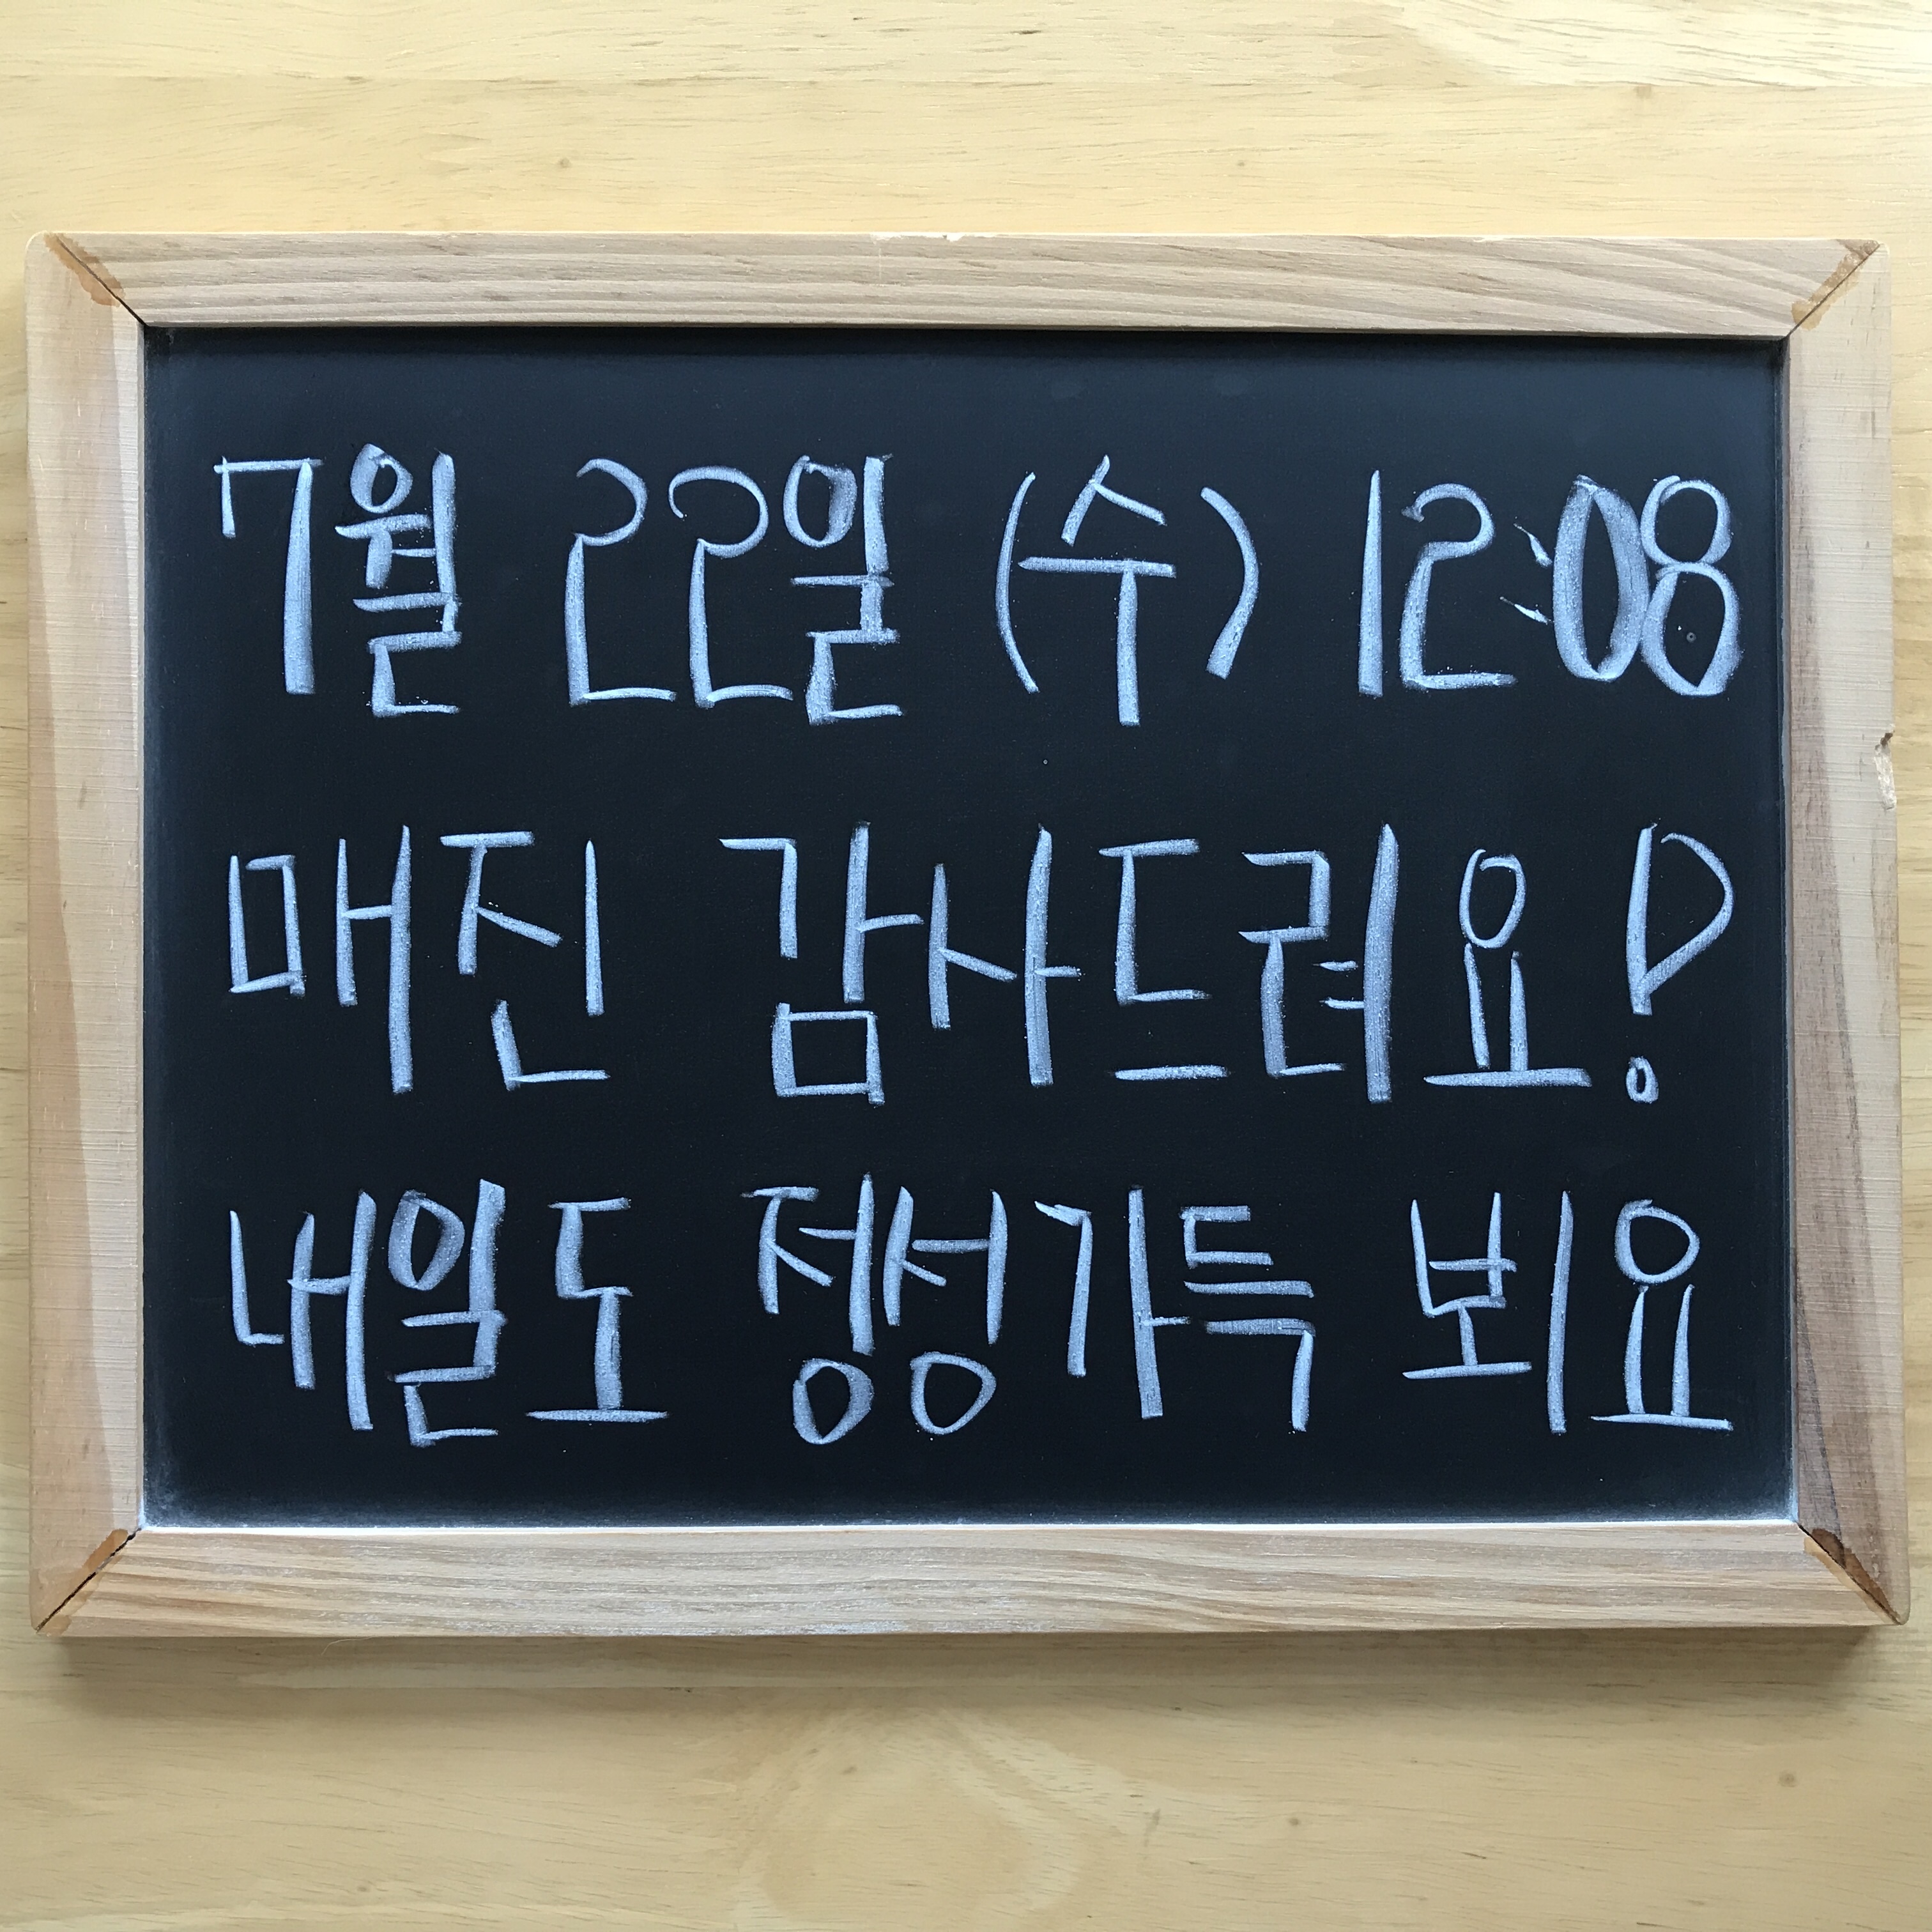 7월 22일 (수) 12:08
매진 감사드려요!
내일도 정성가득 뵈요